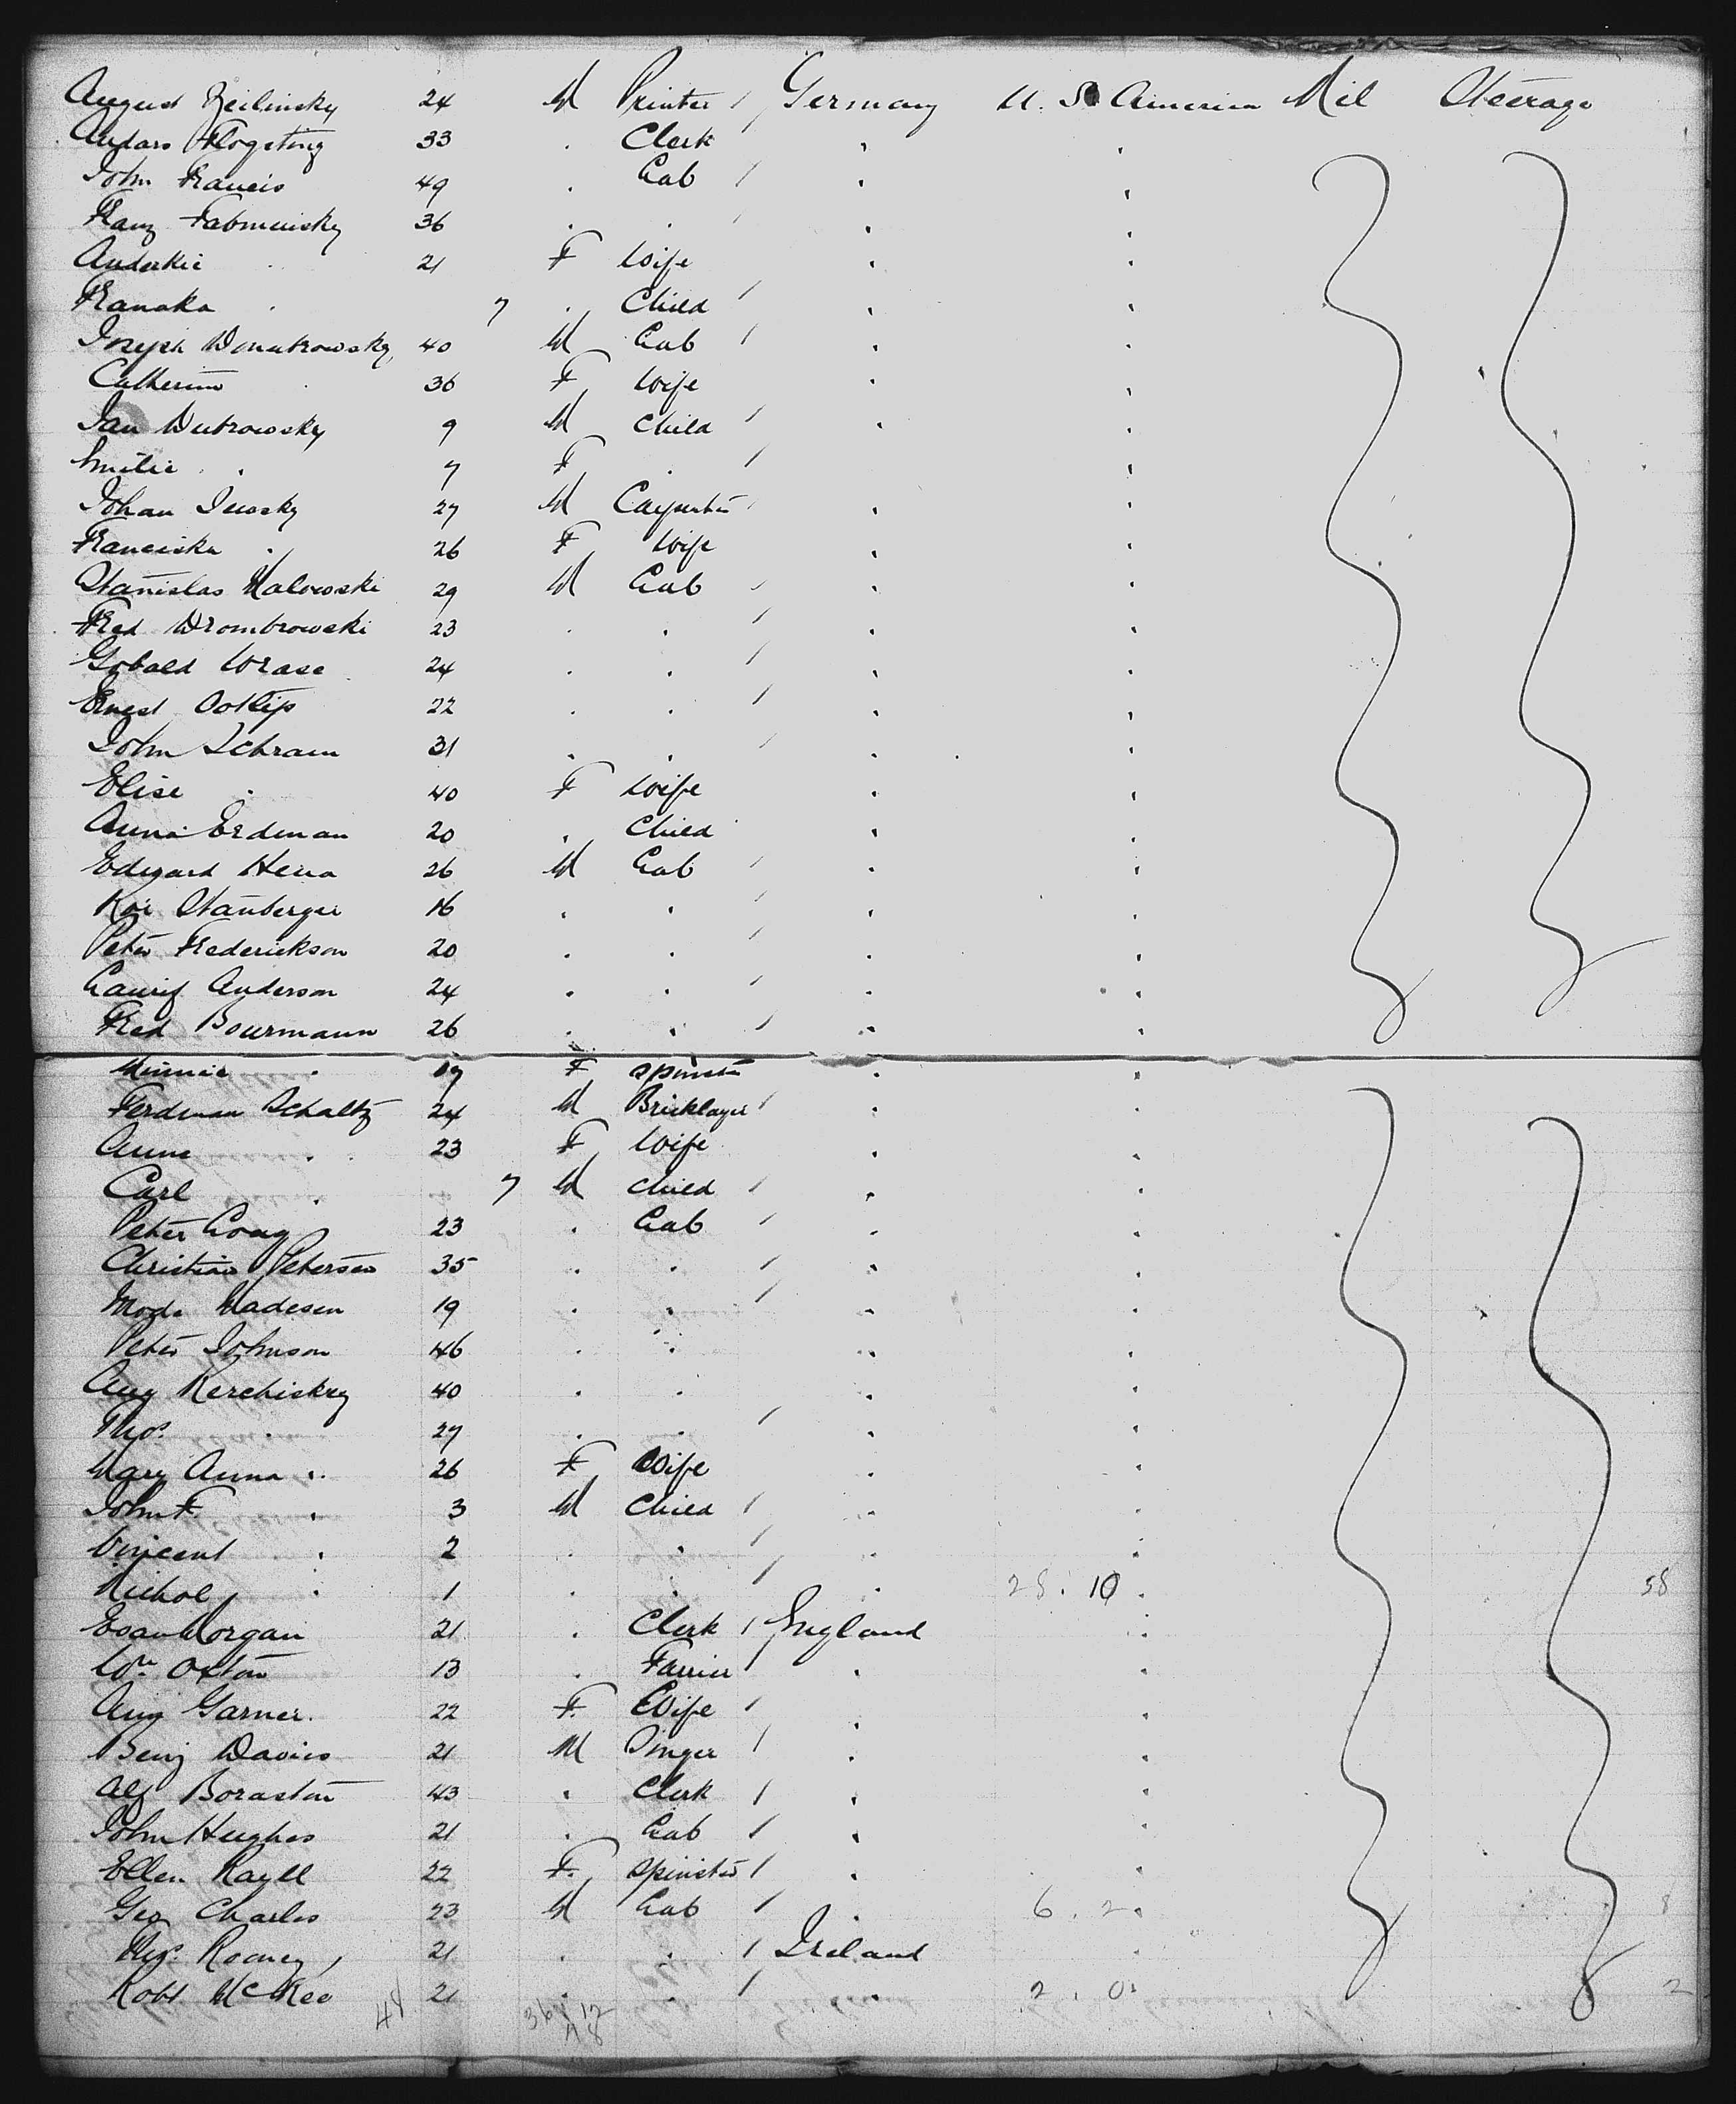 August Zeilinsky 24 M Printer / Germany U. S. America Nil Steerage
Anders Flogsting 33 . Clerk . .
John Francis 49 . Lab / . .
Franz Fabminisky 36 . . / . .
Anderkie . 21 F Wife . .
Franska . 7 . Child / . .
Joseph Donatrowsky 40 M Lab / . .
Catherine . 36 F Wife . .
Jan Dubrowsky 9 M Child / . .
Emilie . 7 F . / . .
Johan Iwosky 27 M Carpenter / . .
Franciska . 26 F Wife . .
Stanislas Malowski 29 M Lab / . .
Fred Drombrowski 23 . . / . .
Gobald Wrase 24 . . / . .
Ernest Ootkip 22 . . / . .
John Schram 31 . . / . .
Elise . 40 F Wife . .
Anna Erdman 20 . Child . .
Edward Hena 26 M Lab / . .
Stanberger 16 . . / . .
Peter Frederickson 20 . . / . .
Laurif Anderson 24 . . / . .
Fred Bourmann 26 . . / . .
Minnie . 19 F Spinster . .
Ferdinan Schaltz 24 M Bricklayer / . .
Anna . 23 F Wife . .
Carl . 7 M Child / . .
Peter Long 23 . Lab / . .
Christian Petersen 35 . . / . .
Mods Madesen 19 . . / . .
Peter Johnson 46 . . . .
Aug Kerchiskey 40 . . . .
Thos . 27 . . / . .
Mary Anna . 26 F Wife . .
John F. . 3 M Child / . .
Vincent . 2 . . / . .
Nichol . 1 . . / . 28 . 10 . 38
Evan Morgan 21 . Clerk / England .
Wm Oxton 13 . Farrier / . .
Amy Garner. 22 F. Wife / . .
Benj Davies 21 M Singer / . .
Alf Boraston 43 . Clerk / . .
John Hughes 21 . Lab / . .
Ellen Kayll 22 F. Spinster / . .
Geo Charles 23 M Lab / . 6 . 2 . 8
Thos. Rooney 21 . . / Ireland .
Robt McKee 21 . . / . 2 . 0 . 2
48 36 12
48